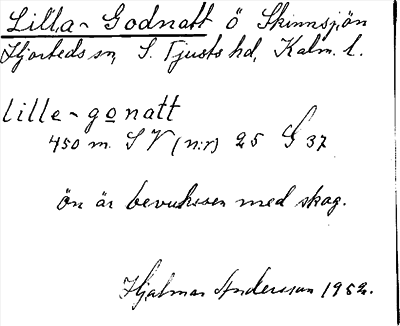 Lilla-Godnatt ö Skinnsjön
Hjorteds sn, S. Tjusts hd, Kalm. l.
lille-gonatt
450 m. SV (n:r) 25 G 37
ön är bevuxsen med skog.
Hjalmar Andersson 1952.